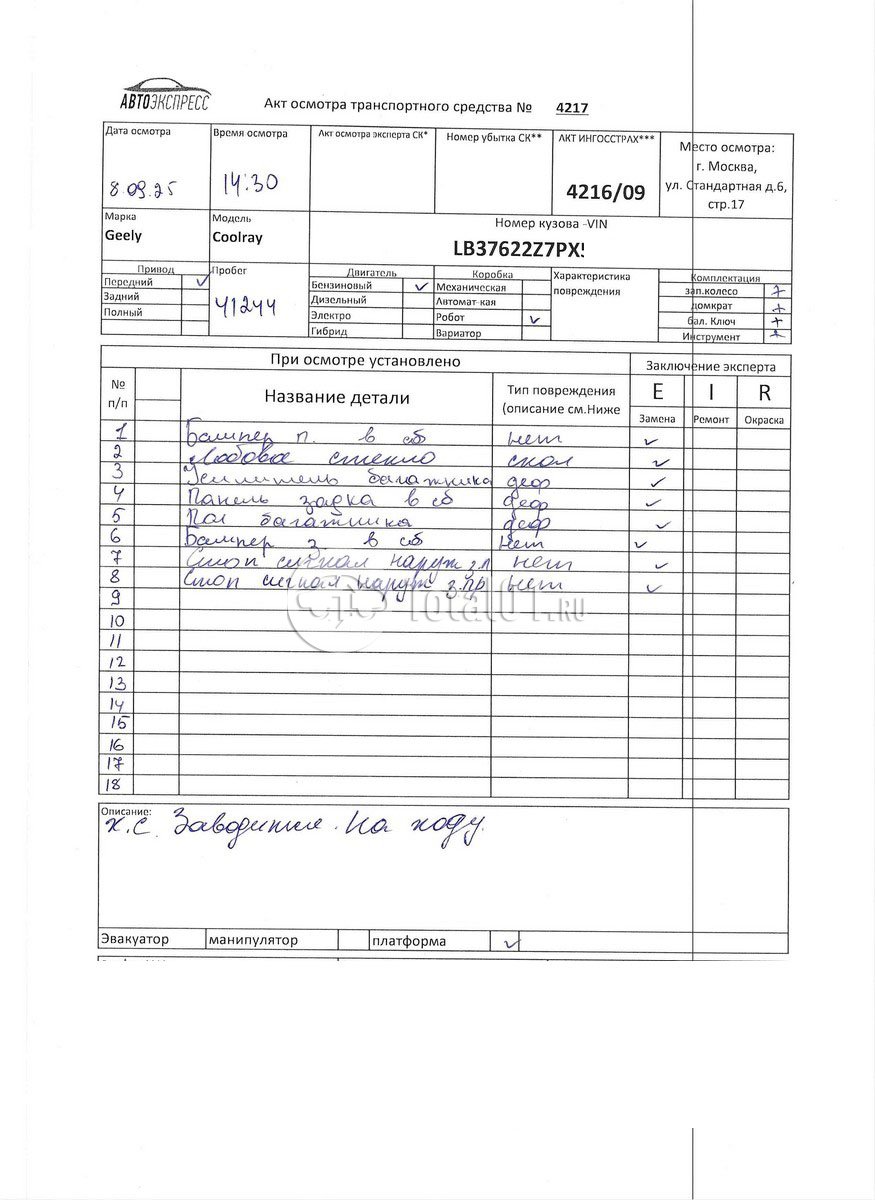 АВТОЭКСПРЕСС
Акт осмотра транспортного средства № 4217
Дата осмотра Время осмотра Акт осмотра эксперта СК* Номер убытка СК** АКТ ИНГОССТРАХ*** Место осмотра:
8.09.25 14:30 4216/09 г. Москва,
ул. Стандартная д.6,
стр.17
Марка Модель Номер кузова -VIN
Geely Coolray LB37622Z7PX
Привод Пробег Двигатель Коробка Характеристика повреждения Комплектация
41244
Передний ✓ Бензиновый ✓ Механическая зап.колесо +
Задний Дизельный Автомат-кая домкрат +
Полный Электро Робот ✓ бал. Ключ +
Гибрид Вариатор Инструмент +
При осмотре установлено Заключение эксперта
№ п/п Название детали Тип повреждения (описание см.Ниже E I R
Замена Ремонт Окраска
1 Бампер п. в сб нет ✓
2 Лобовое стекло скол ✓
3 Усилитель багажника деф ✓
4 Панель задка в сб деф ✓
5 Пол багажника деф ✓
6 Бампер з. в сб нет ✓
7 Стоп сигнал наруж з.л нет ✓
8 Стоп сигнал наруж з.пр нет ✓
9
10
11
12
13
14
15
16
17
18
Total01.RU
Описание:
х.с. Заводится. На ходу.
Эвакуатор манипулятор платформа ✓